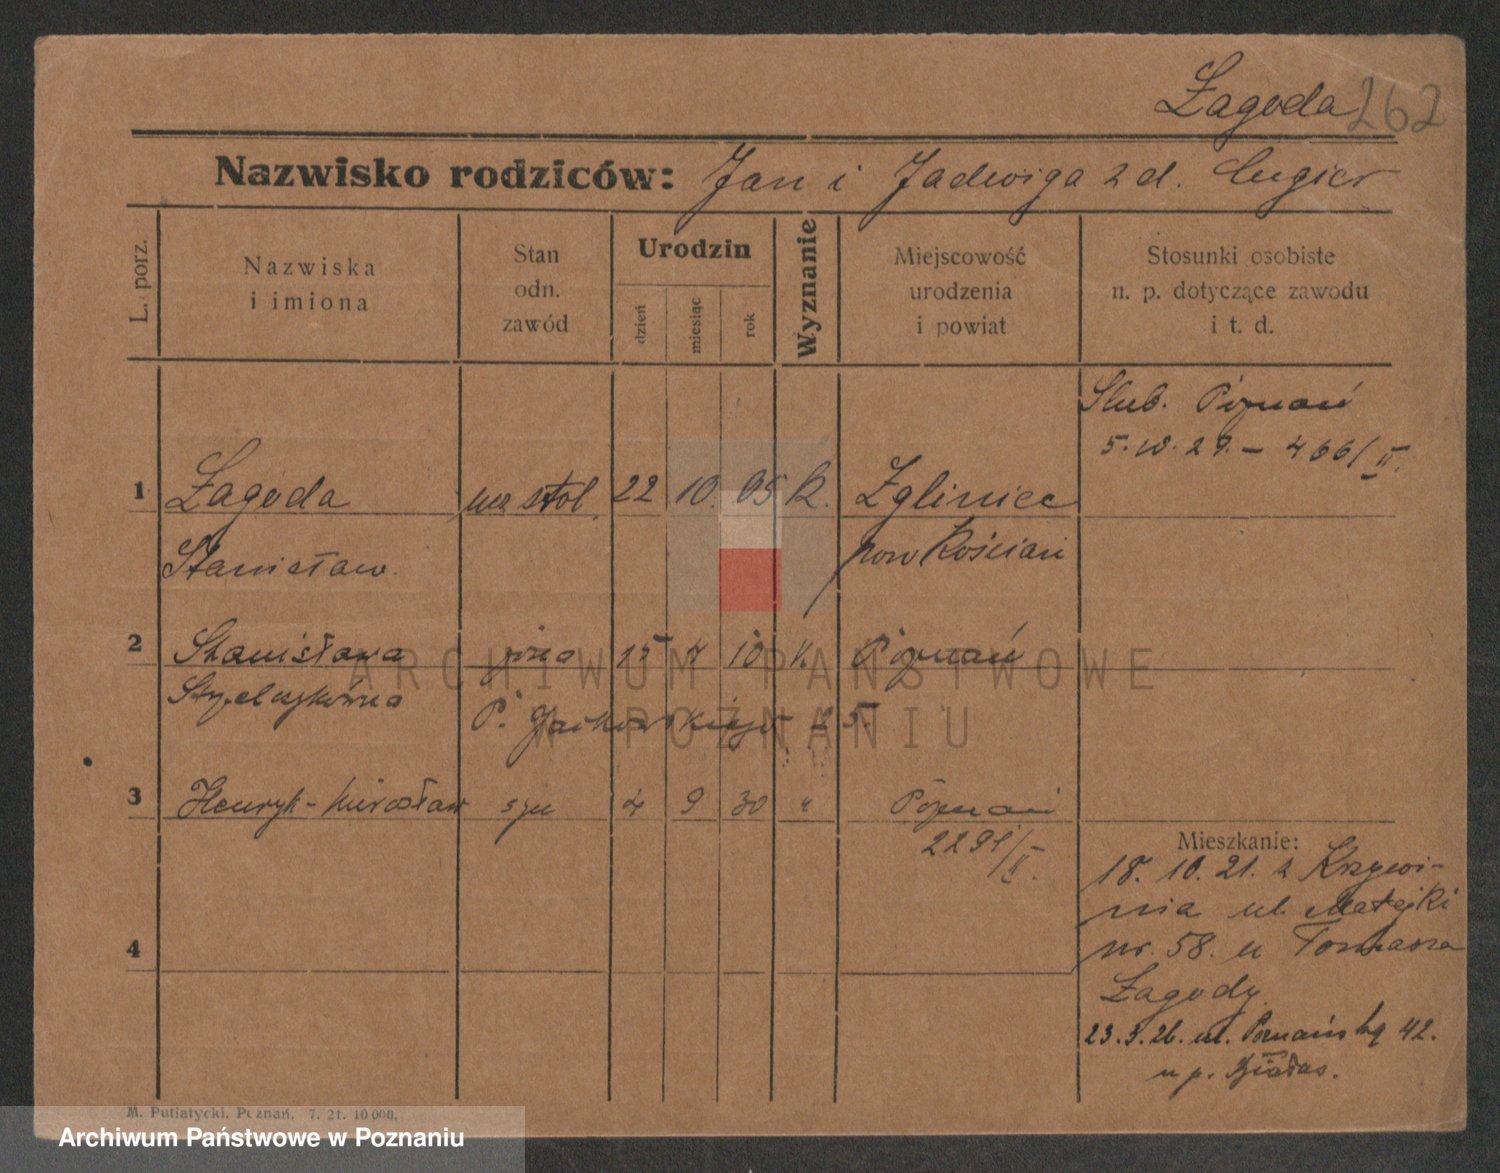 Żagoda 262
Nazwisko rodziców: Jan i Jadwiga z d. Cugier
L. porz.
Nazwiska
i imiona
Stan
odn.
zawód
Urodzin
dzień
miesiąc
rok
Wyznanie
Miejscowość
urodzenia
i powiat
Stosunki osobiste
n. p. dotyczące zawodu
i t. d.
Ślub. Poznań
5. 10. 29. – 466/II.
1 Żagoda ucz stol. 22 10. 05 k. Zgliniec
Stanisław. pow Kościan
2 Stanisława żona 15 10 k. Poznań
P.
3 Henryk-Mirosław syn 4 9 30 " Poznań
2291/II.
Mieszkanie:
18. 10. 21. z Krzywi-
nia ul. Matejki
nr. 58. u Tomasza
Żagody.
23. 3. 26. ul. Poznańska 42.
u p.
4
M. Putiatycki, Poznań, 7. 21. 10 000.
ARCHIWUM PAŃSTWOWE
W POZNANIU
Archiwum Państwowe w Poznaniu